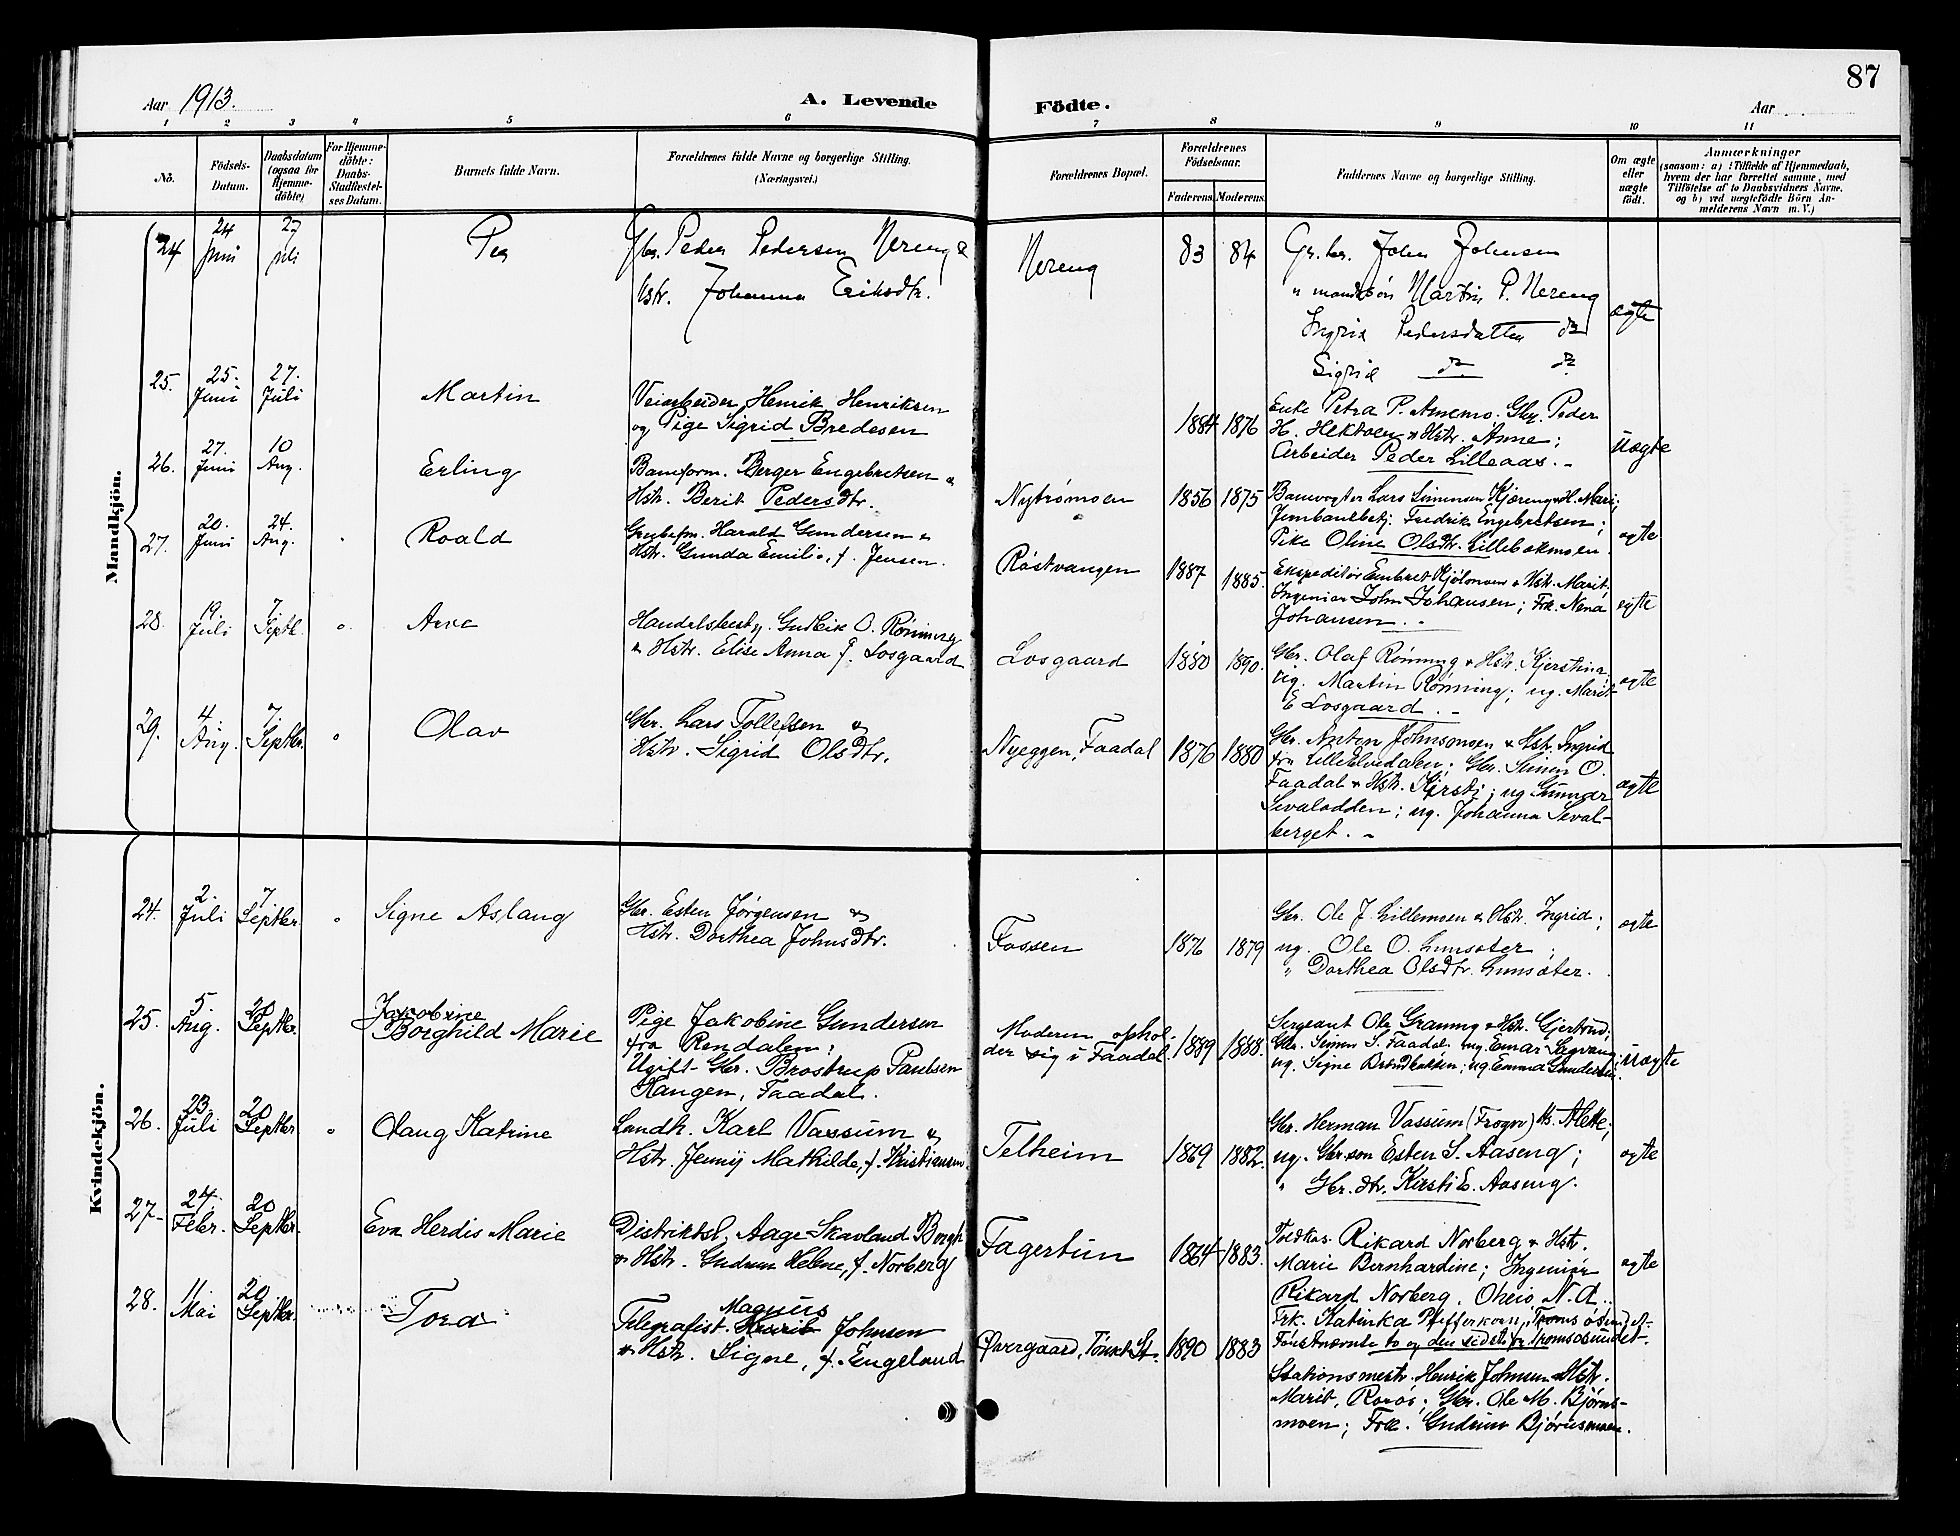 87
Aar 1913.
A. Levende Födte.
Aar
1 2 3 4 5 6 7 8 9 10 11
No.
Födsels-Datum.
Daabsdatum (ogsaa for Hjemme-döbte)
For Hjemme-döbte: Daabs-Stadfæstel-ses Datum.
Barnets fulde Navn.
Forældrenes fulde Navne og borgerlige Stilling. (Næringsvei.)
Forældrenes Bopæl.
Forældrenes Födselsaar.
Faderens. Moderens.
Faddernes Navne og borgerlige Stilling.
Om ægte eller uægte födt.
Anmærkninger
(saasom: a) i Tilfælde af Hjemmedaab,
hvem der har forrettet samme, med
Tilföielse af to Daabsvidners Navne,
og b) ved uægtefödte Börn An-
melderens Navn m. V.)
Mandkjön.
24 24 Juni 27 juli Per
Gbr. Peder Pedersen Nereng &
Hstr. Johanna Eriksdtr.
Nereng 83 84
Gr. br. John Johnsen
" mandsøn Martin P. Nereng
Ingrid Pedersdatter do
Sigrid do do
ægte
25. 25. Juni 27. Juli Martin
Veiarbeider Henrik Henriksen
og Pige Sigrid Bredesen
1884 1876
Enke Petra P. Amemo. Gbr. Peder
H. Hektoen & Hstr. Anne;
Arbeider Peder Lilleaas. -
uægte
26. 27. Juni 10 Aug. Erling
Baneform. Berger Engebretsen &
Hstr. Berit Pedersdtr.
Nytrømoen 1856 1875
Banevogter Lars Simensen Kjæreng & H. Mari;
Jernbanebetj. Fredrik Engebretsen;
Pike Oline Olsdtr. Lillebakmoen
ægte
27. 20. Juni 24. Aug. Roald
Grubefm. Harald Gundersen &
Hstr. Gunda Emilie, f. Jensen.
Røstvangen 1887 1885.
Ekspeditør Embret Kjølmoen & Hstr. Marit;
Ingeniør John Johansen; Frk. Nena
Johansen. -
ægte
28. 19. Juli 7 Septb. Arve
Handelsbesty. Gudbrik O. Rønning
& Hstr. Elise Anna f. Losgaard
Losgaard 1880 1890.
Gbr. Olaf Rønning & Hstr. Kjerstina,
ug. Martin Rønning; ug. Marit
E Losgaard. -
ægte
29. 4. Aug. 7 Septbr. Olav
Gbr. Lars Tollefsen &
Hstr. Sigrid Olsdtr.
Nyeggen, Faadal 1876 1880
Gbr. Anton Johnsmoen & Hstr. Ingrid
fra Lilleelvedalen; Gbr. Simen O.
Faadal & Hstr. Kjersti; ug Gunnar
Sevalodden; ug. Johanna Seval-
berget. -
ægte
Kvindekjön.
24. 2. Juli 7 Septbr Signe Aslaug
Gbr. Esten Jørgensen &
Hstr. Dorthea Johnsdtr.
Fossen 1876 1879
Gbr. Ole J. Lillemoen & Hstr. Ingrid;
ug. Ole O. Lunsæter;
" Dorthea Olsdtr. Lunsæter.
ægte
25. 5 Aug. 20 Septbr Jakobine
Borghild Marie
Pige Jakobine Gundersen
fra Rendalen;
Ugift Gbr. Brostrup Paulsen
Hangen, Faadal.
Moderen ophol-
der sig i Faadal 1889 1888.
Sergeant Ole Graning & Hstr. Gjertrud;
Gbr. Simen S. Faadal. ug. Einar
ug. Signe ug. Emma Gundersen.
uægte
26. 23 Juli 20 Septbr Olaug Katrine
Landh. Karl Vassum &
Hstr. Jenny Mathilde, f. Kristiansen
Telheim 1869 1882.
Gbr. Herman Vassum (Frogn) Hs. Alette;
ug. Gbr.søn Esten S. Aaseng;
" Gbr. dtr. Kirsti E. Aaseng.
ægte
27 24. Febr. 20 Septbr. Eva Herdis Marie
Distriktsl. Aage Skavland Bergh
& Hstr. Gudrun Helene, f. Norberg
Fagertun 1864 1883.
Toldkas. Rikard Norberg & Hstr.
Marie Bernhardine; Ingeniør
Rikard Norberg, Oheio N.A.
Frk. Katinka Pfefferkorn, Tromsøsundet
Førstnævnte to og den sidste fr Tromsøsundet.
ægte
28. 11 Mai 20 Septbr. Tora
Magnus
Telegrafist. Henrik Johnsen
& Hstr. Signe, f. Engeland
Øvergaard, Tønset St. 1890 1883
Stationsmestr. Henrik Johnsen & Hstr.
Marit, Røros; Gbr. Ole M. Bjørns-
moen; Frk. Gudrun Bjørnsmoen.